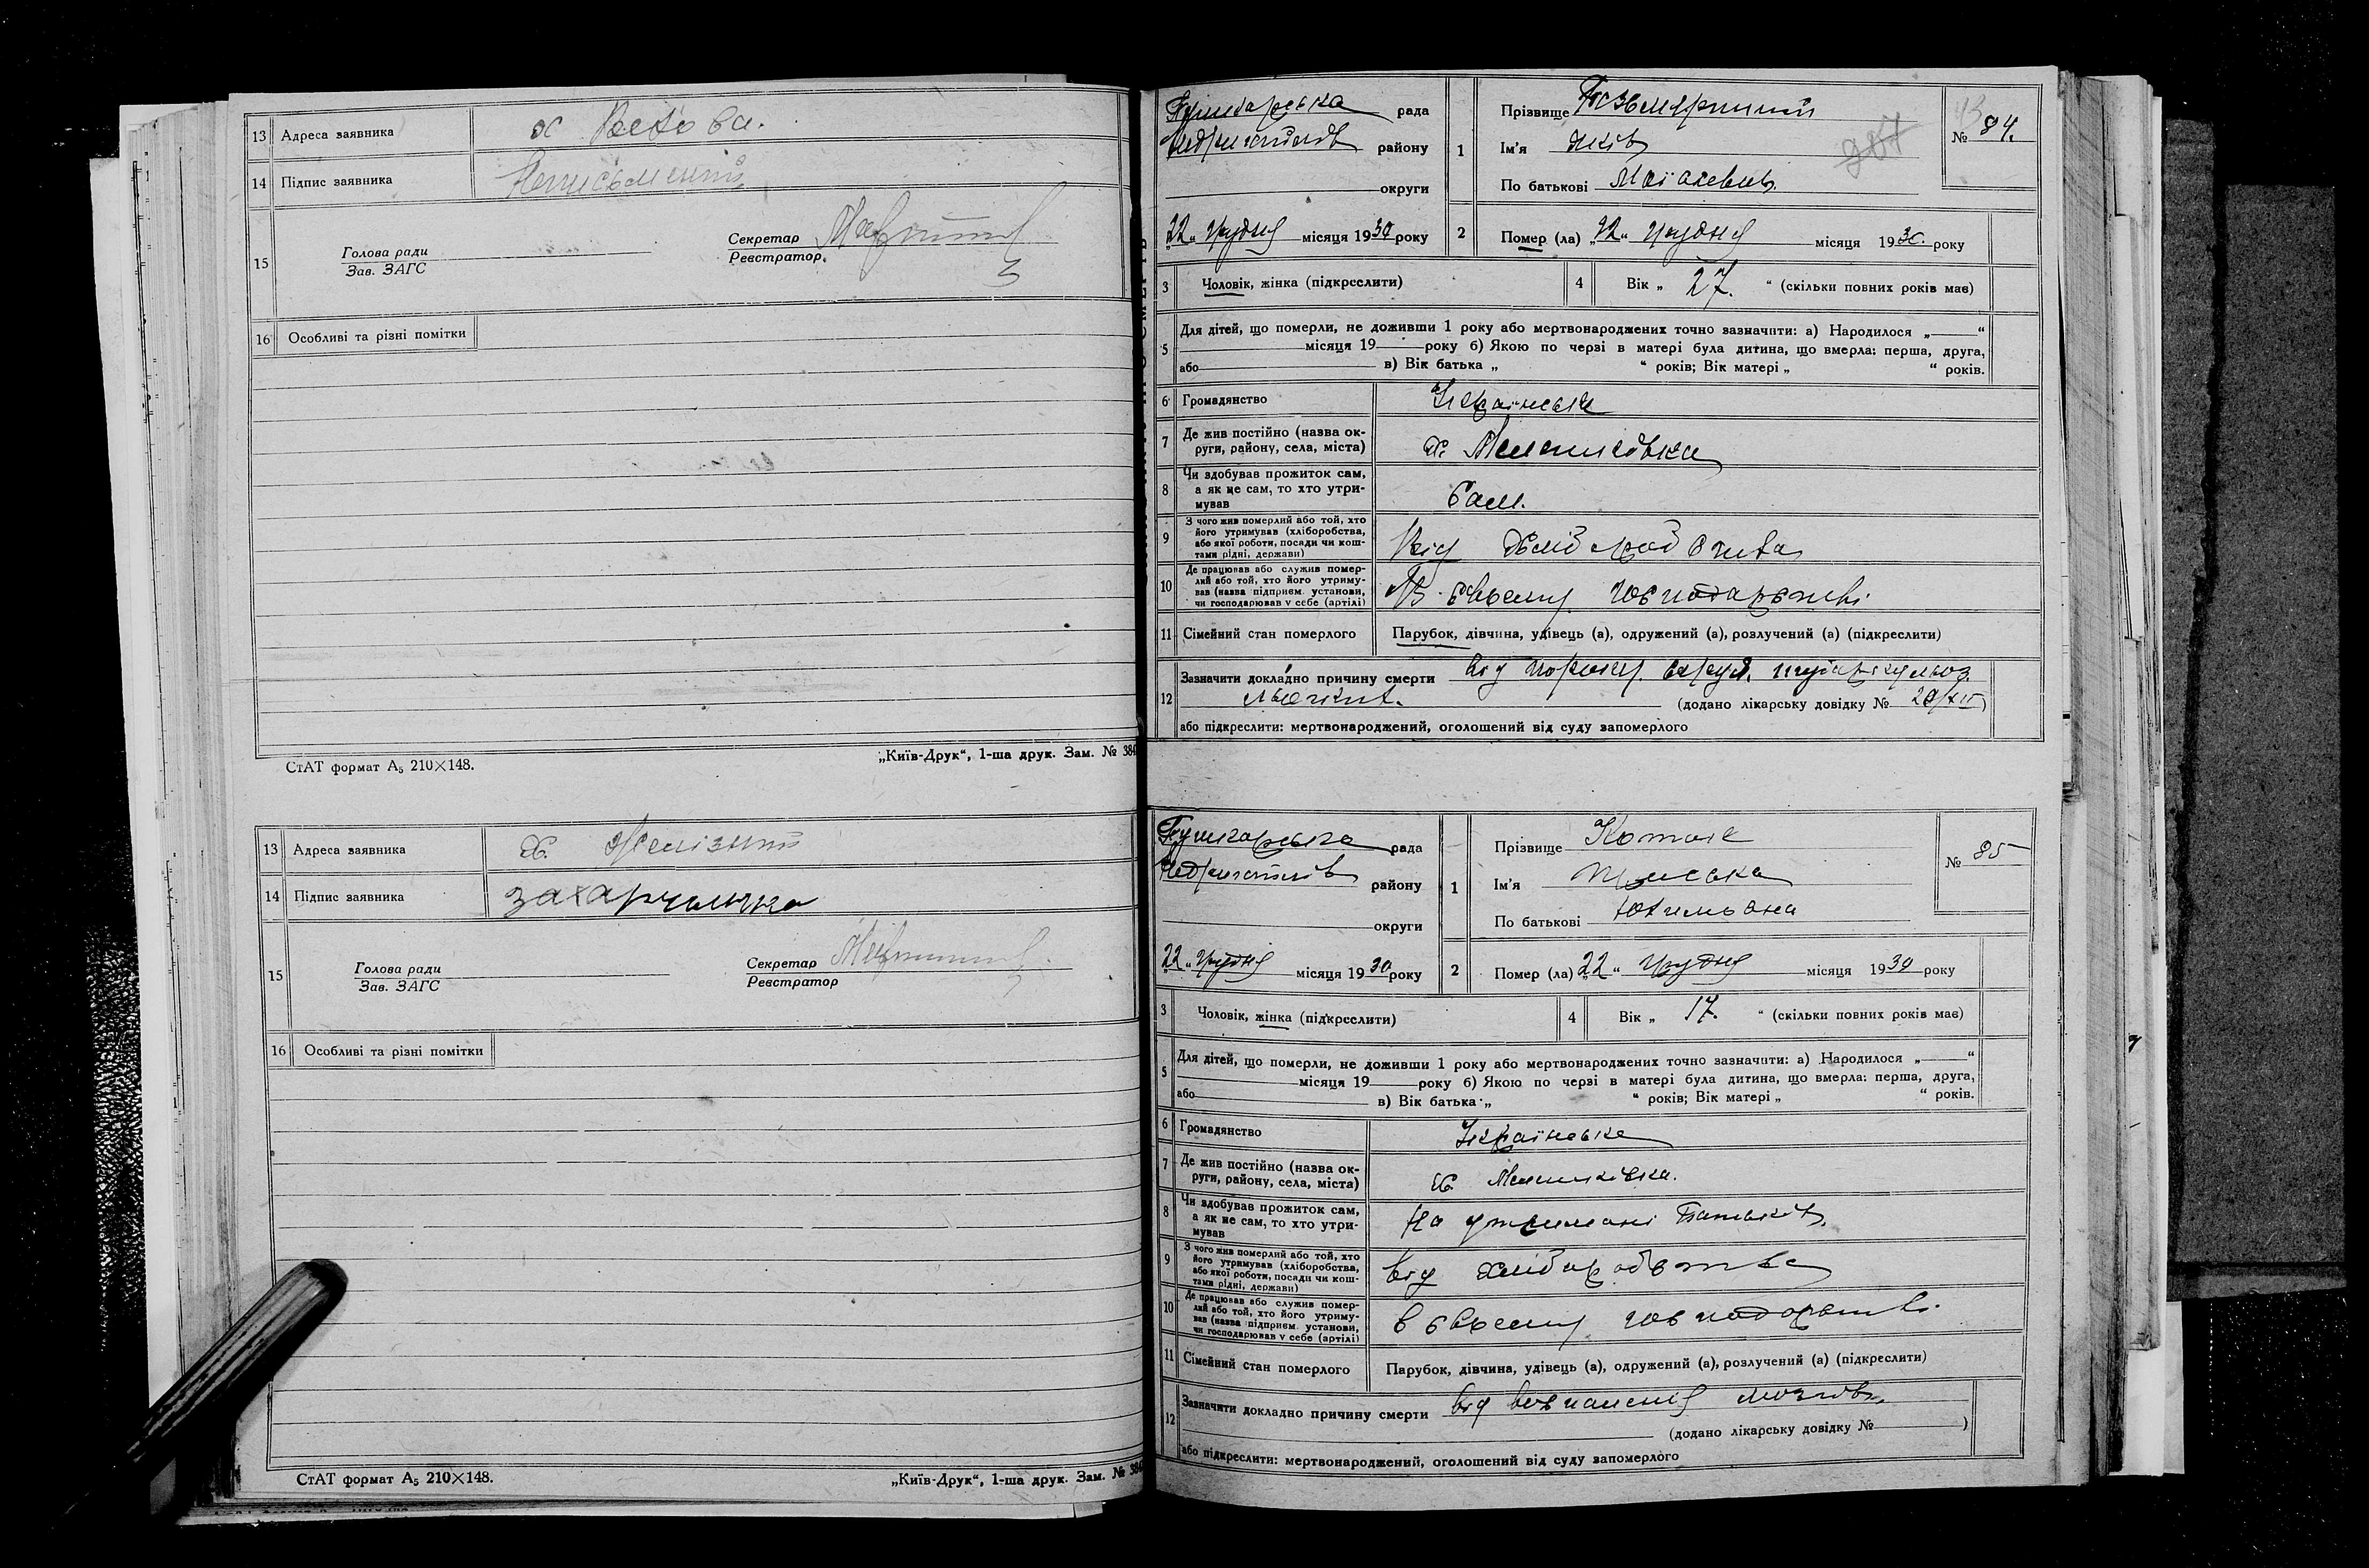 13 Адреса заявника х
14 Підпис заявника Неписьменний
15 Голова ради
Зав. ЗАГС
Секретар
Реєстратор
16 Особливі та різні помітки
СтАТ формат А5 210×148.
„Київ-Друк“, 1-ша друк. Зам. № 384
13 Адреса заявника х. Желізний
14 Підпис заявника Захарченко
15 Голова ради
Зав. ЗАГС
Секретар
Реєстратор
16 Особливі та різні помітки
СтАТ формат А5 210×148.
„Київ-Друк“, 1-ша друк. Зам. № 384
Пушкарська рада
Недригайлів району
округи
22 „ Грудня місяця 1930 року
1 Прізвище
Ім’я Яків
По батькові
№ 84.
2 Помер (ла) „22“ Грудня місяця 1930. року
3 Чоловік, жінка (підкреслити)
4 Вік „ 27. “ (скільки повних років має)
5 Для дітей, що померли, не доживши 1 року або мертвонароджених точно зазначити: а) Народилося „ “
місяця 19 року б) Якою по черзі в матері була дитина, що вмерла: перша, друга,
або в) Вік батька „ “ років; Вік матері „ “ років.
6 Громадянство Українське
7 Де жив постійно (назва ок-
руги, району, села, міста) х.
8 Чи здобував прожиток сам,
а як не сам, то хто утри-
мував Сам.
9 З чого жив померлий або той, хто
його утримував (хліборобства,
або якої роботи, посади чи кош-
тами рідні, держави) Від хліборобства
10 Де працював або служив помер-
лий або той, хто його утриму-
вав (назва підприєм. установи,
чи господарював у себе (артілі) В своєму господарстві
11 Сімейний стан померлого Парубок, дівчина, удівець (а), одружений (а), розлучений (а) (підкреслити)
12 Зазначити докладно причину смерти від
(додано лікарську довідку № 20/XII)
або підкреслити: мертвонароджений, оголошений від суду запомерлого
Пушкарська рада
Недригайлів району
округи
22 „ Грудня місяця 1930 року
1 Прізвище Котляр
Ім’я Приська
По батькові
№ 85
2 Помер (ла) „22“ Грудня місяця 1930 року
3 Чоловік, жінка (підкреслити)
4 Вік „ 17. “ (скільки повних років має)
5 Для дітей, що померли, не доживши 1 року або мертвонароджених точно зазначити: а) Народилося „ “
місяця 19 року б) Якою по черзі в матері була дитина, що вмерла: перша, друга,
або в) Вік батька „ “ років; Вік матері „ “ років.
6 Громадянство Українське
7 Де жив постійно (назва ок-
руги, району, села, міста) х.
8 Чи здобував прожиток сам,
а як не сам, то хто утри-
мував На утримані Батьків
9 З чого жив померлий або той, хто
його утримував (хліборобства,
або якої роботи, посади чи кош-
тами рідні, держави) від хліборобства
10 Де працював або служив помер-
лий або той, хто його утриму-
вав (назва підприєм. установи,
чи господарював у себе (артілі) в своєму господарстві.
11 Сімейний стан померлого Парубок, дівчина, удівець (а), одружений (а), розлучений (а) (підкреслити)
12 Зазначити докладно причину смерти від воспаленія мозгов
(додано лікарську довідку № )
або підкреслити: мертвонароджений, оголошений від суду запомерлого